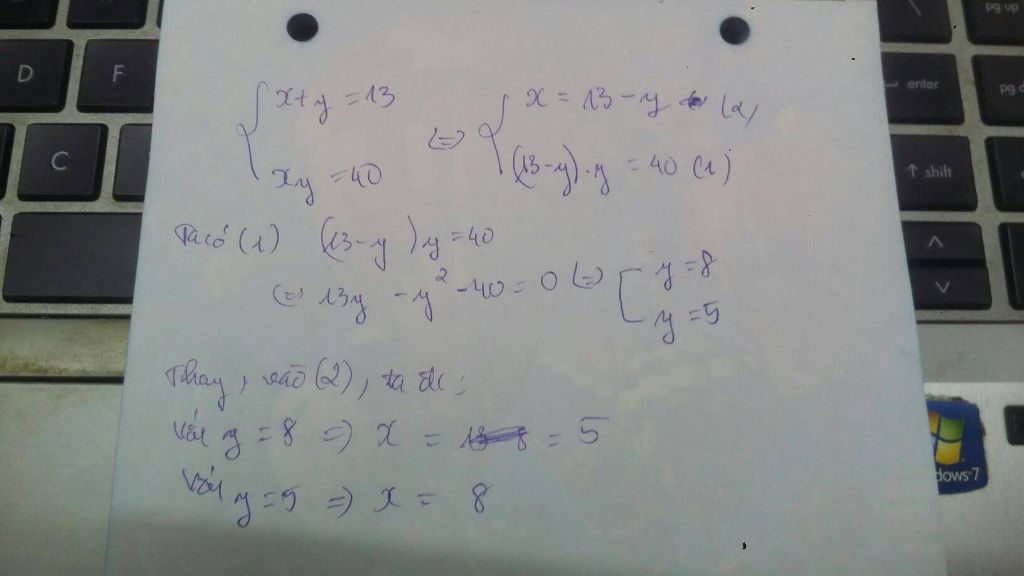 D
F
C
pg up
enter
pg d
shift
{ x+y = 13
{ xy = 40
⇔
{ x = 13 - y (2)
{ (13-y).y = 40 (1)
Ta có (1) (13-y)y = 40
⇔ 13y - y² - 40 = 0 ⇔ [ y = 8
[ y = 5
Thay, vào (2), ta đc:
Với y = 8 => x = = 5
Với y = 5 => x = 8
dows 7